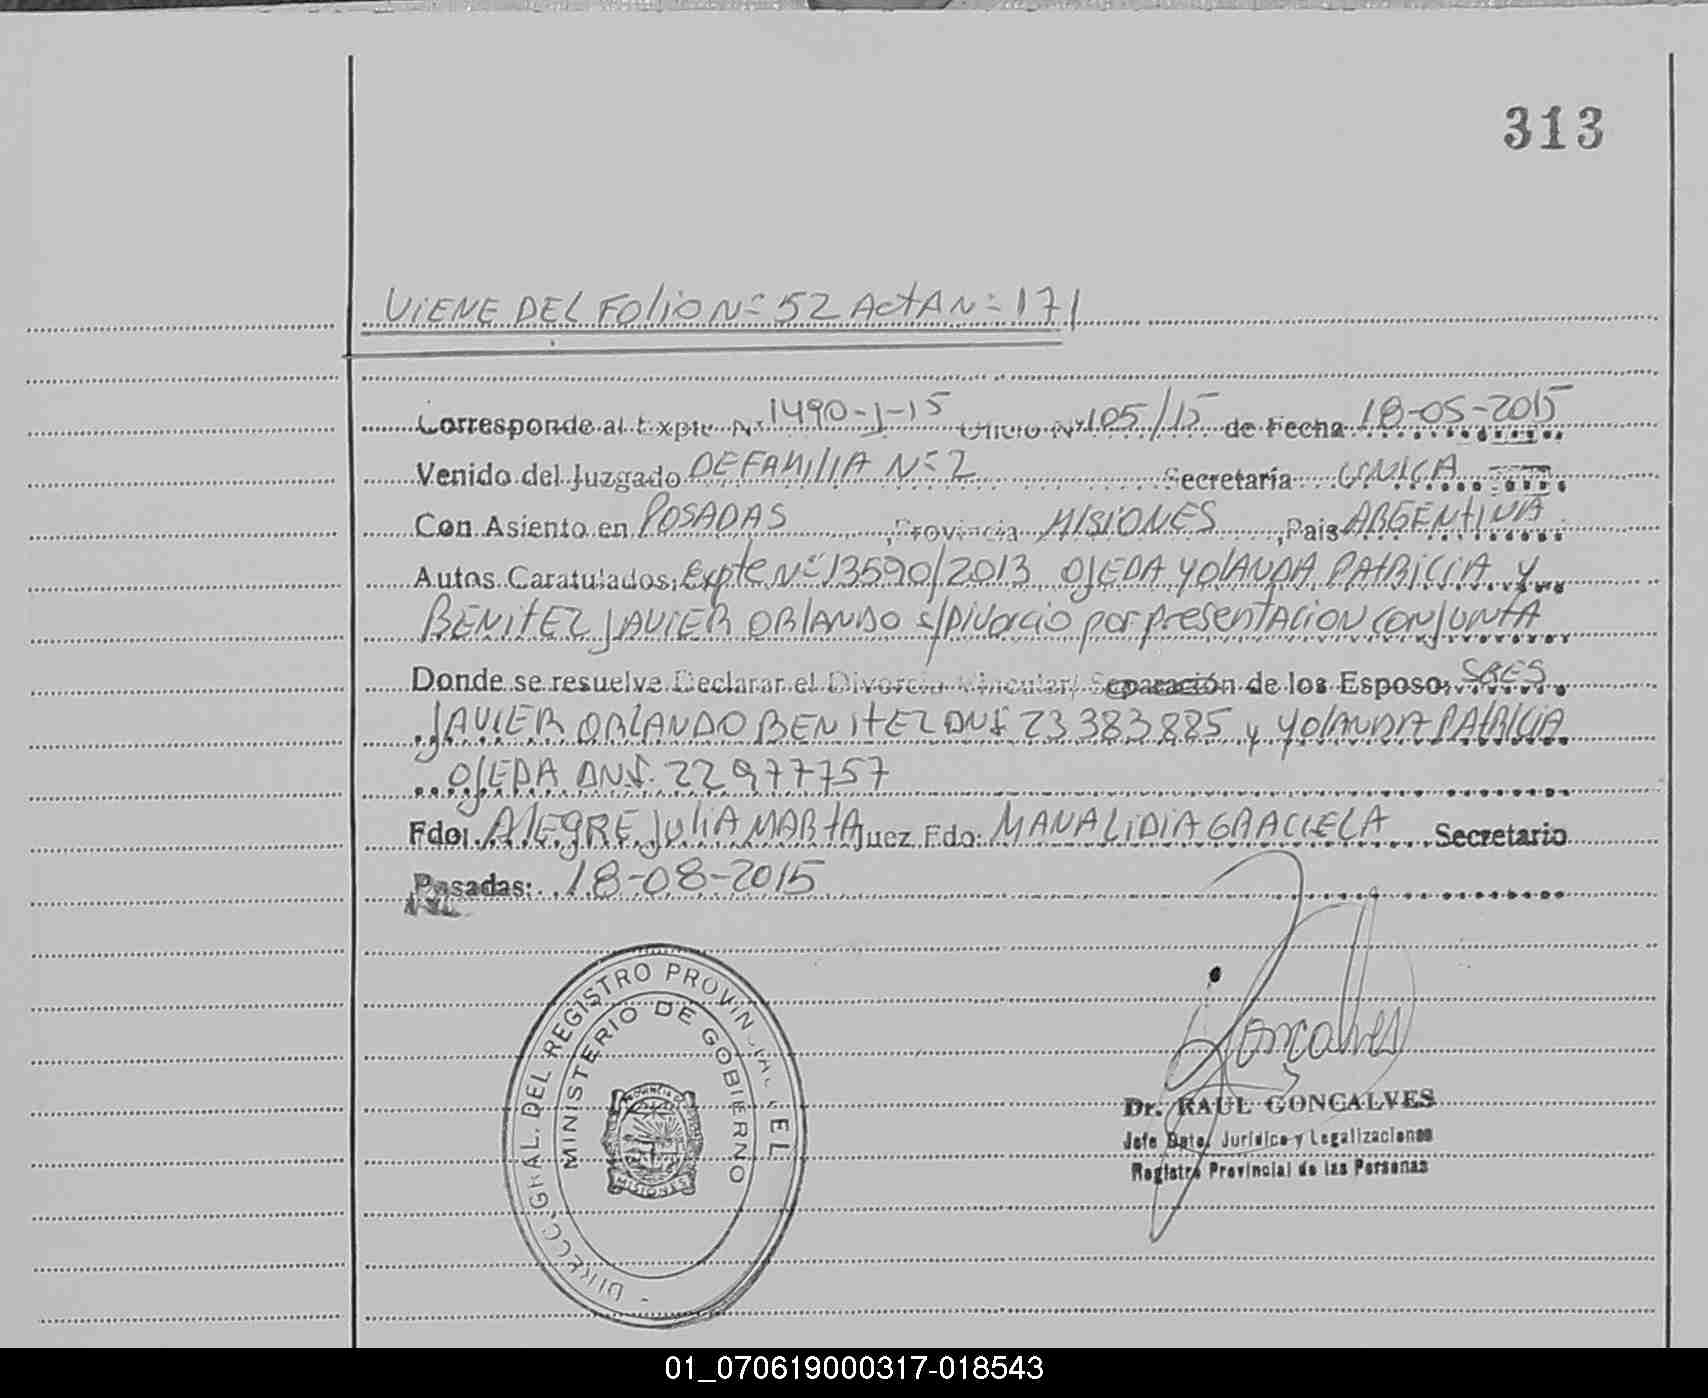 313
VIENE DEL FOLIO Nº 52 ACTA Nº 171
Corresponde al Expte. Nº 1490-J-15 Oficio Nº 105/15 de Fecha 18-05-2015
Venido del Juzgado DE FAMILIA Nº 2 Secretaría UNICA
Con Asiento en POSADAS, Provincia MISIONES, Pais ARGENTINA
Autos Caratulados: Expte Nº 13590/2013 OJEDA YOLANDA PATRICIA Y
BENITEZ JAVIER ORLANDO s/Divorcio por presentacion conjunta
Donde se resuelve Declarar el Divorcio Vincular/ Separación de los Esposos SRES
JAVIER ORLANDO BENITEZ DNI 23383885 y YOLANDA PATRICIA
OJEDA DNI. 22977757
Fdo: ALEGRE JULIA MARTA Juez Fdo: MANA LIDIA GRACIELA Secretario
Posadas: 18-08-2015
DIRECC. GRAL. DEL REGISTRO PROVINCIAL DE L
MINISTERIO DE GOBIERNO
PROVINCIA DE
MISIONES
Goncalves
Dr. RAUL GONCALVES
Jefe Dpto. Jurídico y Legalizaciones
Registro Provincial de las Personas
01_070619000317-018543